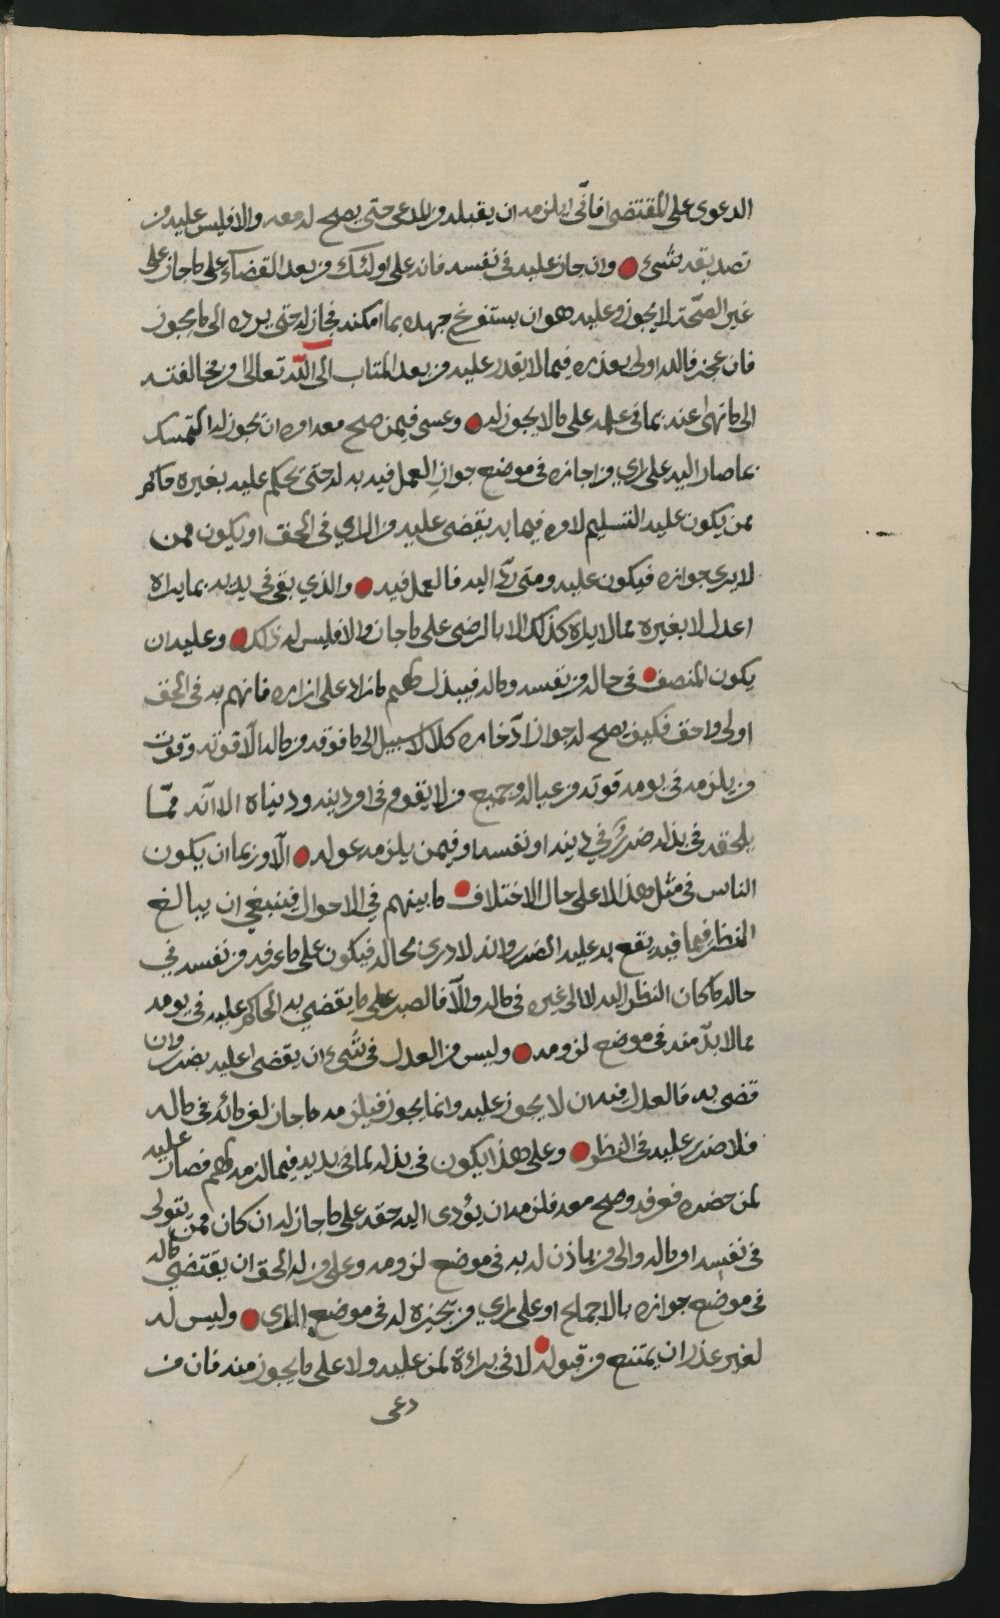 الدعوى على المقتضي فانّى يلزمه ان يقبله من المدعى حتى يصح له معه والا فليس عليه من
تصديقه شىء وان جاز عليه في نفسه فانه على اولئك من بعد القضاء على ما جاز على
غير الصحّة لا يجوز وعليه هو ان يستفرغ جهده بما امكنه فجاز له حتى يرده الى ما يجوز
فان عجز فالله اولى بعذره فيما لا يقدر عليه من بعد المتاب الى اللّه تعالى من مخالفته
الى ما نهى عنه بما في علمه على ما لا يجوز له وعسى فيمن صح معه امره ان يجوز له التمسك
بما صار اليه على راي من اجازه في موضع جواز العمل فيه به له حتى يحكم عليه بغيره حاكم
ممن يكون عليه التسليم لامره فيما به يقضى عليه من الراي في الحق او يكون ممن
لا يرى جوازه فيكون عليه ومتى ردّ اليه فالعمل فيه والذي بقى في يديه بما يراه
اعدل لا بغيره مما لا يراه كذلك الا بالرضى على ما جاز والا فليس له ذلك وعليه ان
يكون المنصف في حاله من نفسه وماله فيبذل لهم ما زاد على ازاره فانهم به في الحق
اولى واحق فكيف يصح له جواز ادّخاره كلا لا سبيل الى ما فوقه من ماله الّا قوته وقوت
من يلزمه في يومه قوته من عياله وجميع من لا يقوم في امر دينه ودنياه الا انّه ممّا
يلحقه في بذله ضرر في دينه او نفسه او فيمن يلزمه عوله الّا وربما ان يكون
الناس في مثل هذا لا على حال الاختلاف ما بينهم في الاحوال فينبغي ان يبالغ
النظر فيما فيه يقع به عليه الضرر وانه لادرى بحاله فيكون على ما عرفه من نفسه في
حاله كما كان النظر اليه لا الى غيره في ماله والّا فالصبر على ما يقضي به الحاكم عليه في يومه
مما لا بدّ منه في موضع لزومه وليس من العدل في شىء ان يقضى عليه بضرر وان
قضى به فالعدل فيه ان لا يجوز عليه وانما يجوز فيلزمه ما جاز لغرمائه في ماله
فلا ضرر عليه في النظر وعلى هذا يكون في بذله لما في يديه فيما لزمه لهم فصار عليه
لمن حضره فعرفه وصح معه فلزمه ان يؤدى اليه حقه على ما جاز له ان كان ممن يتولى
في نفسه امر ماله والى من ياذن له به في موضع لزومه وعلى من له الحق ان يقتضي ماله
في موضع جوازه بالاجماع او على راي من يجيزه له في موضع الراي وليس له
لغير عذر ان يمتنع من قبوله لا في براءة لمن عليه ولا على ما يجوز منه فان من
دعى